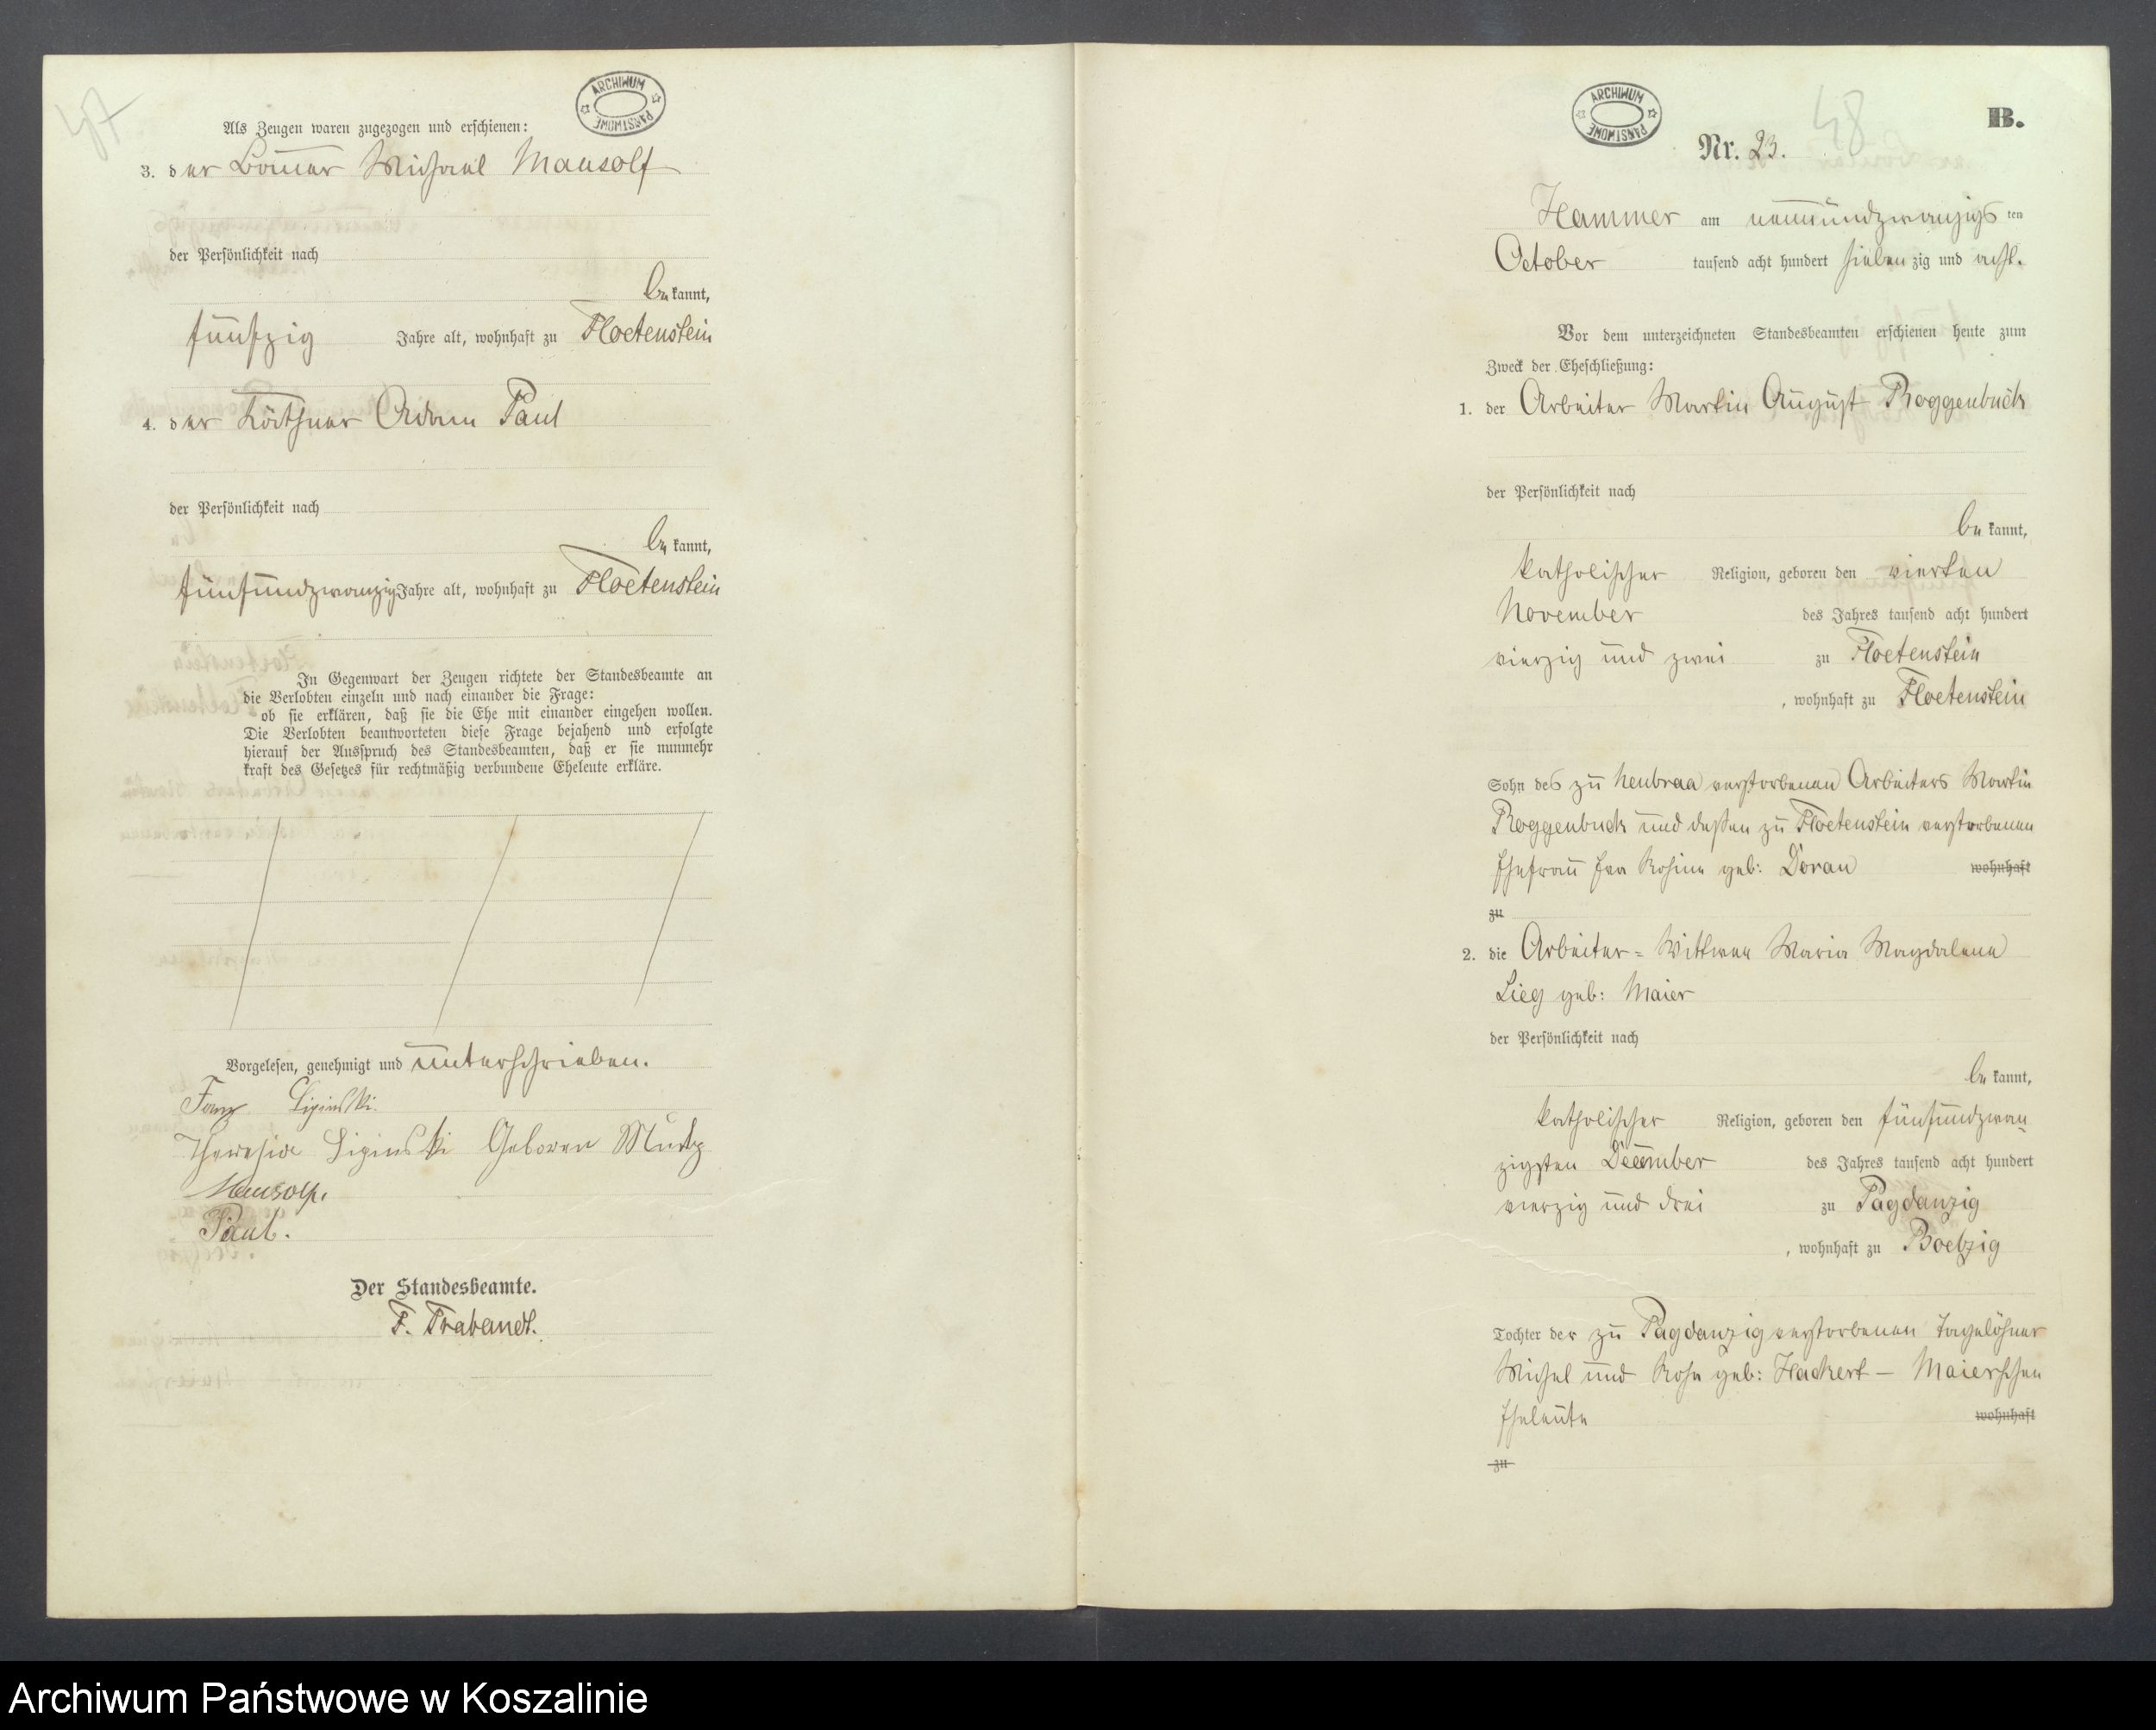 47
ARCHIWUM PAŃSTWOWE
Als Zeugen waren zugezogen und erschienen:
3. der Bauer Michael Mausolf
der Persönlichkeit nach
bekannt,
fünfzig Jahre alt, wohnhaft zu Floetenstein
4. der Käthner Adam Paul
der Persönlichkeit nach
bekannt,
fünfundzwanzig Jahre alt, wohnhaft zu Floetenstein
In Gegenwart der Zeugen richtete der Standesbeamte an
die Verlobten einzeln und nach einander die Frage:
ob sie erklären, daß sie die Ehe mit einander eingehen wollen.
Die Verlobten beantworteten diese Frage bejahend und erfolgte
hierauf der Ausspruch des Standesbeamten, daß er sie nunmehr
kraft des Gesetzes für rechtmäßig verbundene Eheleute erkläre.
Vorgelesen, genehmigt und unterschrieben.
Franz Lipinski.
Theresia Lipinski Geboren
Mausolf.
Paul.
Der Standesbeamte.
F. Trabandt.
ARCHIWUM PAŃSTWOWE
48
B.
Nr. 23.
Hammer am neunundzwanzigsten
October tausend acht hundert siebenzig und acht.
Vor dem unterzeichneten Standesbeamten erschienen heute zum
Zweck der Eheschließung:
1. der Arbeiter Martin August Roggenbuck
der Persönlichkeit nach
bekannt,
katholischer Religion, geboren den vierten
November des Jahres tausend acht hundert
vierzig und zwei zu Floetenstein
, wohnhaft zu Floetenstein
Sohn des zu Neubraa verstorbenen Arbeiters Martin
Roggenbuck und dessen zu Floetenstein verstorbenen
Ehefrau Eva Rosine geb: Doran wohnhaft
zu
2. die Arbeiter= Wittwe Maria Magdalena
Lieg geb: Maier
der Persönlichkeit nach
bekannt,
katholischer Religion, geboren den fünfundzwan
zigsten December des Jahres tausend acht hundert
vierzig und drei zu Pagdanzig
, wohnhaft zu Boelzig
Tochter der zu Pagdanzig verstorbenen Tagelöhner
Michel und Rosa geb: Hackert – Maierschen
Eheleute wohnhaft
zu
Archiwum Państwowe w Koszalinie